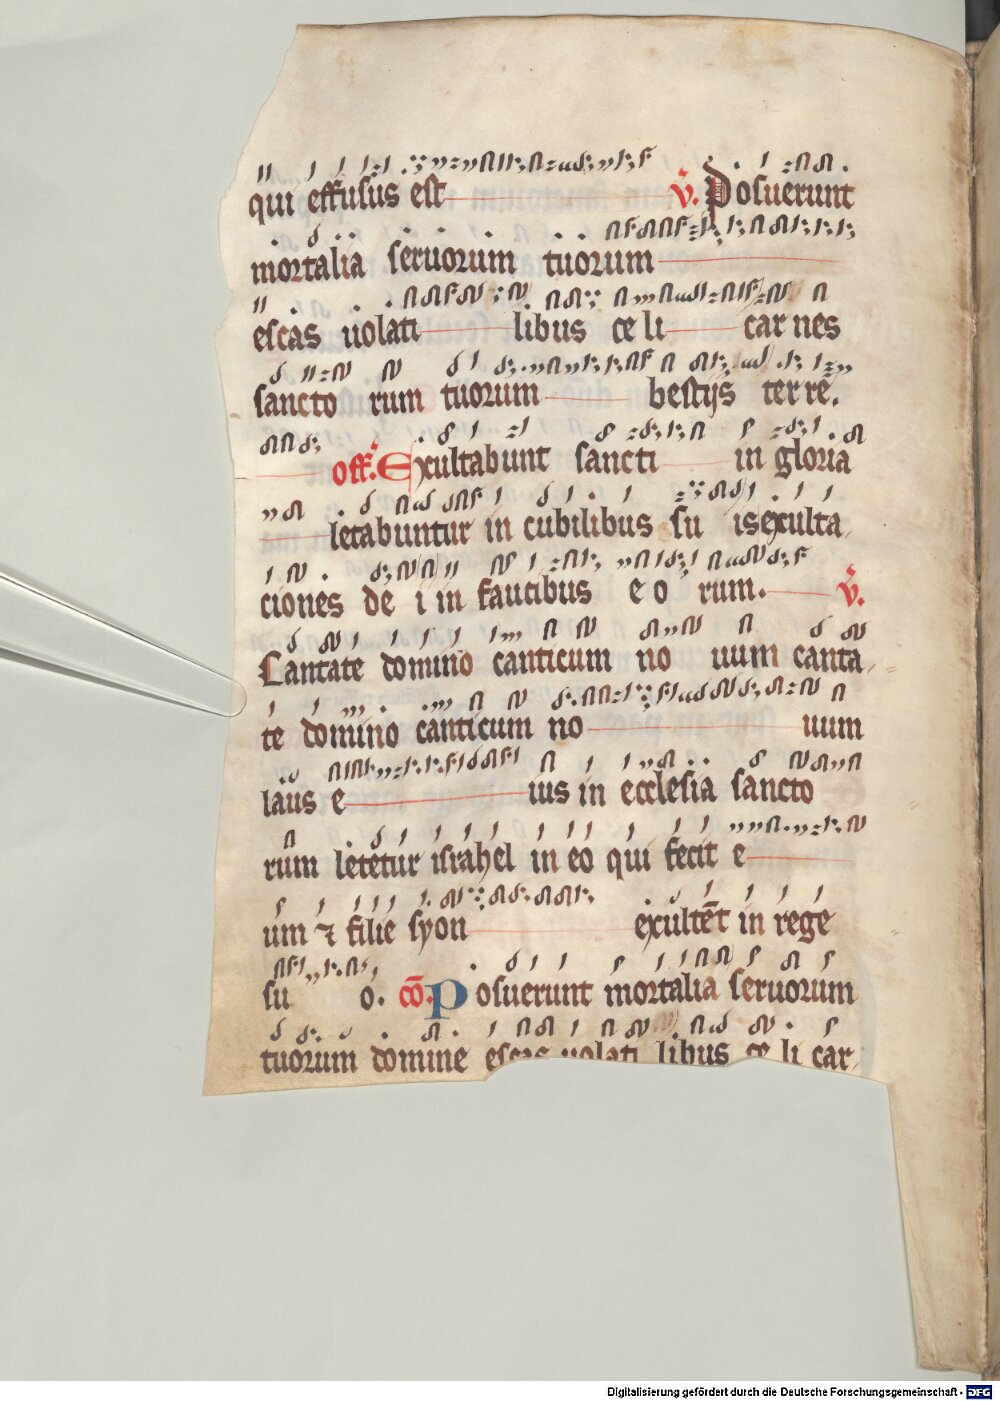 qui effusus est v̄. Posuerunt
mortalia seruorum tuorum
escas uolati libus ce li car nes
sancto rum tuorum bestijs ter re.
off. Exultabunt sancti in gloria
letabuntur in cubilibus su is exulta
ciones de i in faucibus e o rum. v̄.
Cantate domino canticum no uum canta
te domino canticum no uum
laus e ius in ecclesia sancto
rum letetur israhel in eo qui fecit e
um ⁊ filie syon exultēt in rege
su o. cō. Posuerunt mortalia seruorum
tuorum domine escas uolati libus ce li car
Digitalisierung gefördert durch die Deutsche Forschungsgemeinschaft - DFG